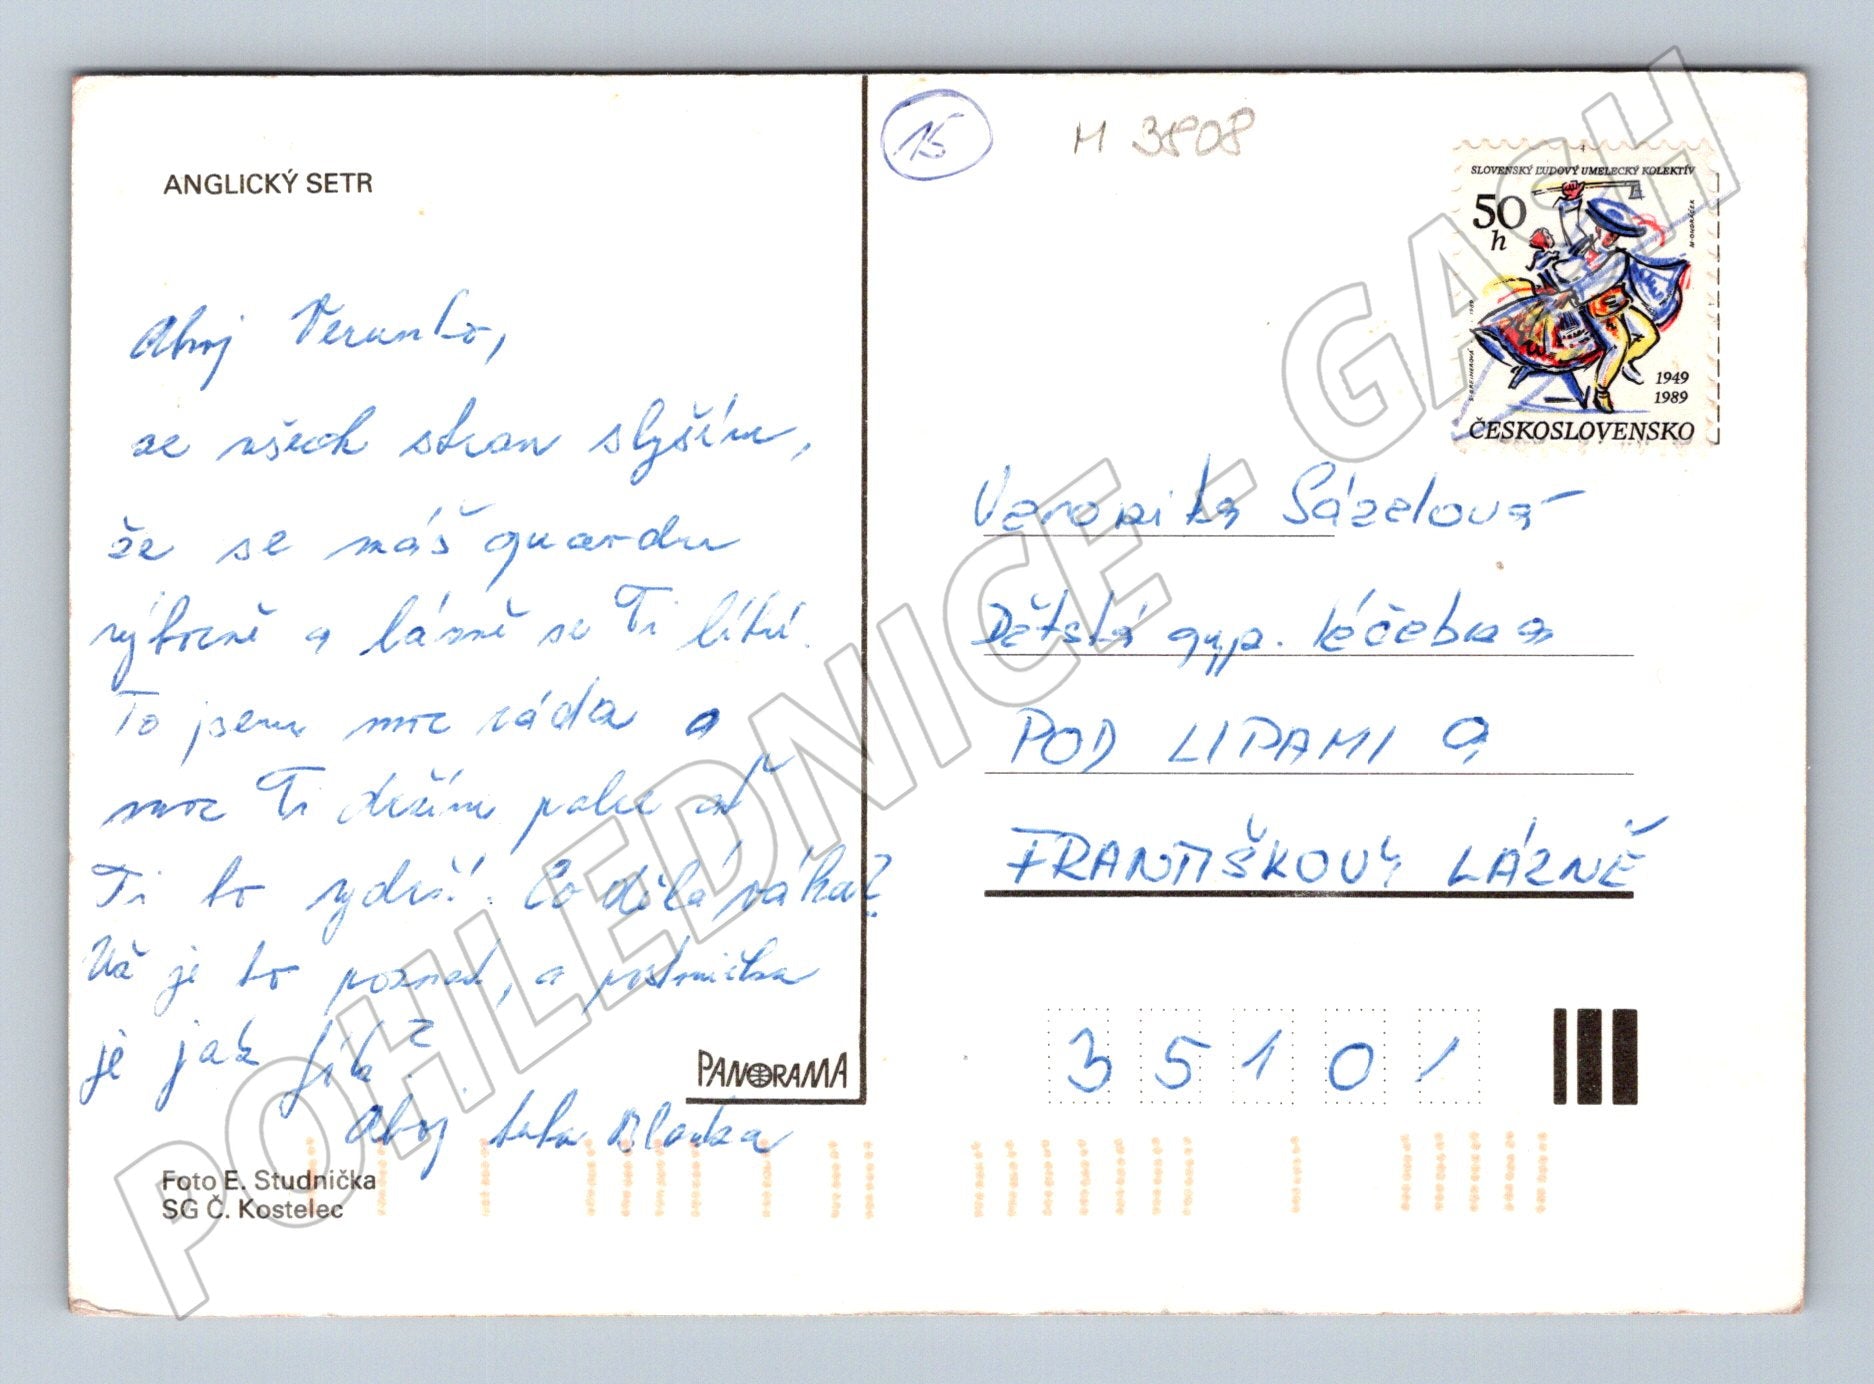 ANGLICKÝ SETR
Ahoj Verunko,
ze všech stran slyším,
že se máš opravdu
výborně a lázně se Ti líbí.
To jsem moc ráda a
moc Ti držím palce ať
Ti to vydrží. Co dělá váha?
Už je to poznat, a postavička
je jak
Ahoj teta Blanka
Foto E. Studnička
SG Č. Kostelec
PANORAMA
15
M 3808
SLOVENSKÝ ĽUDOVÝ UMELECKÝ KOLEKTÍV
50
h
1949
1989
ČESKOSLOVENSKO
Veronika Sázelová
Dětská gyp. léčebna
POD LIPAMI 9
FRANTIŠKOVY LÁZNĚ
35101
POHLEDNICE - GASH